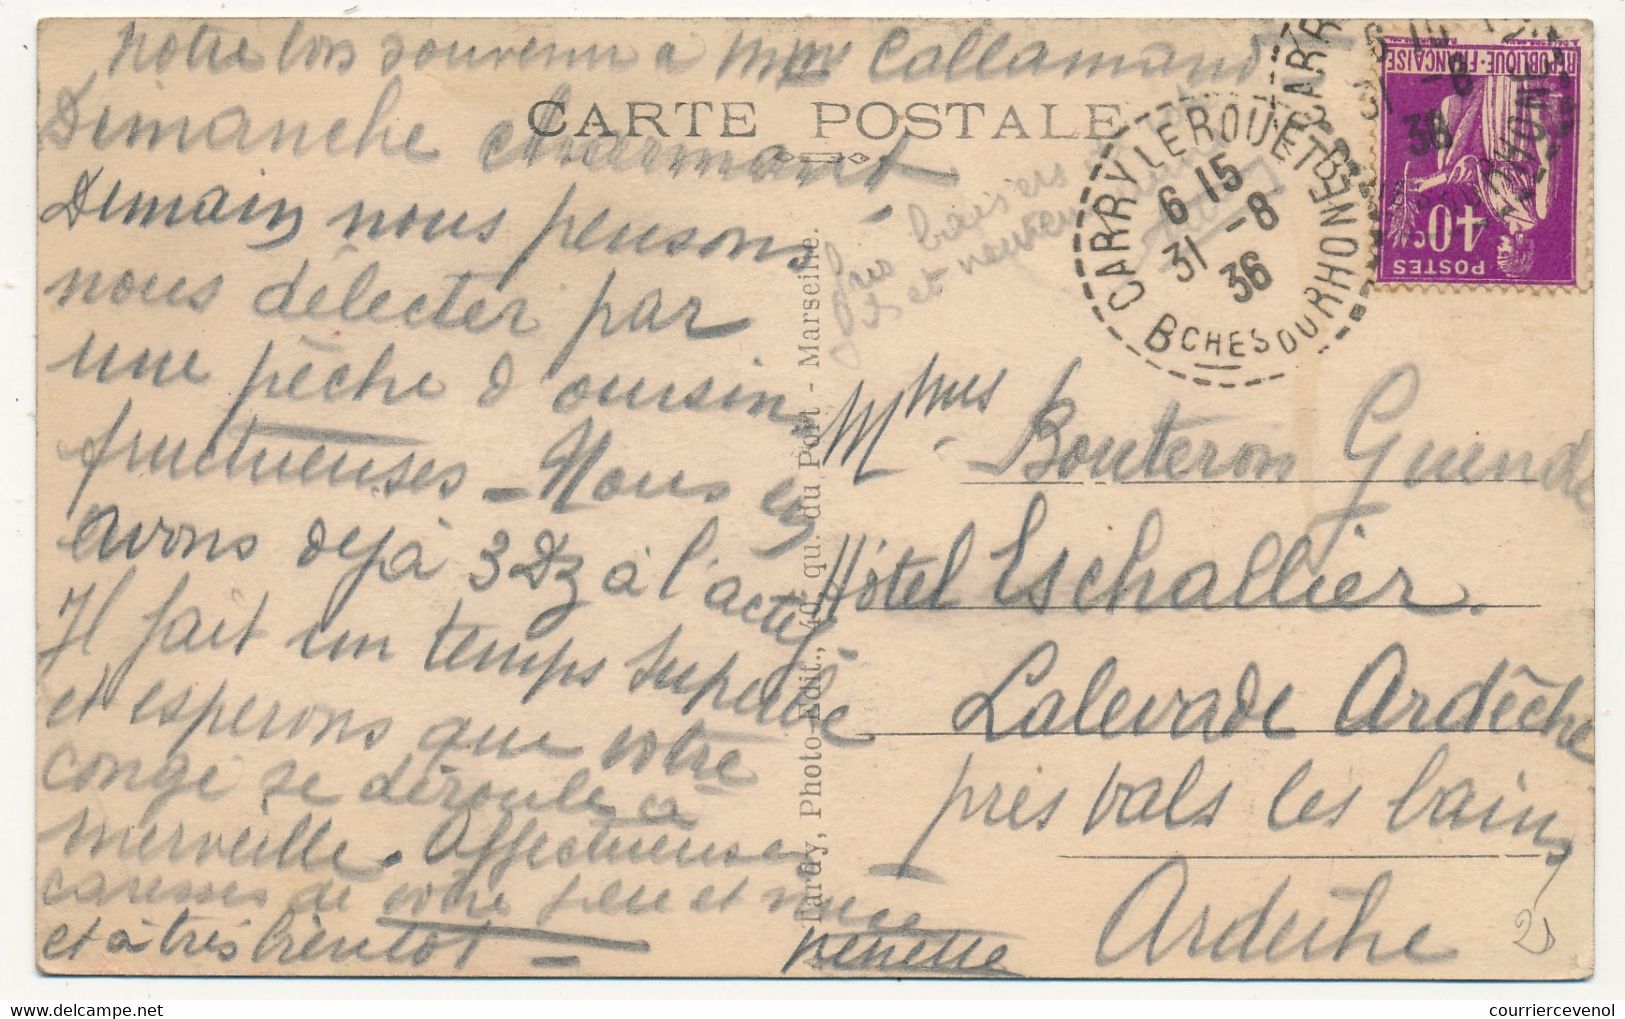 Notre bon souvenir a Mme Callamand
CARTE POSTALE
Dimanche
Demain nous pensons
nous délecter par
une pêche d'oursins
fructueuses - Nous en
avons dejà 3 Dz à l'actif
Il fait un temps superbe
et esperons que votre
congé se déroule a
merveille. Affectueuses
caresses de votre fille et
et à très bientot -
gros baisers
et neveu
CARRY LE ROUET
BCHES DU RHONE
6 15
31 -8
36
REPUBLIQUE·FRANÇAISE
POSTES
40 C
Mmes Bouteron
Hôtel Eschallier.
Lalevade Ardèche
près Vals les bains
Ardèche
Tardy, Photo-Edit., 40, qu. du Port - Marseille.
courriercevenol
www.delcampe.net